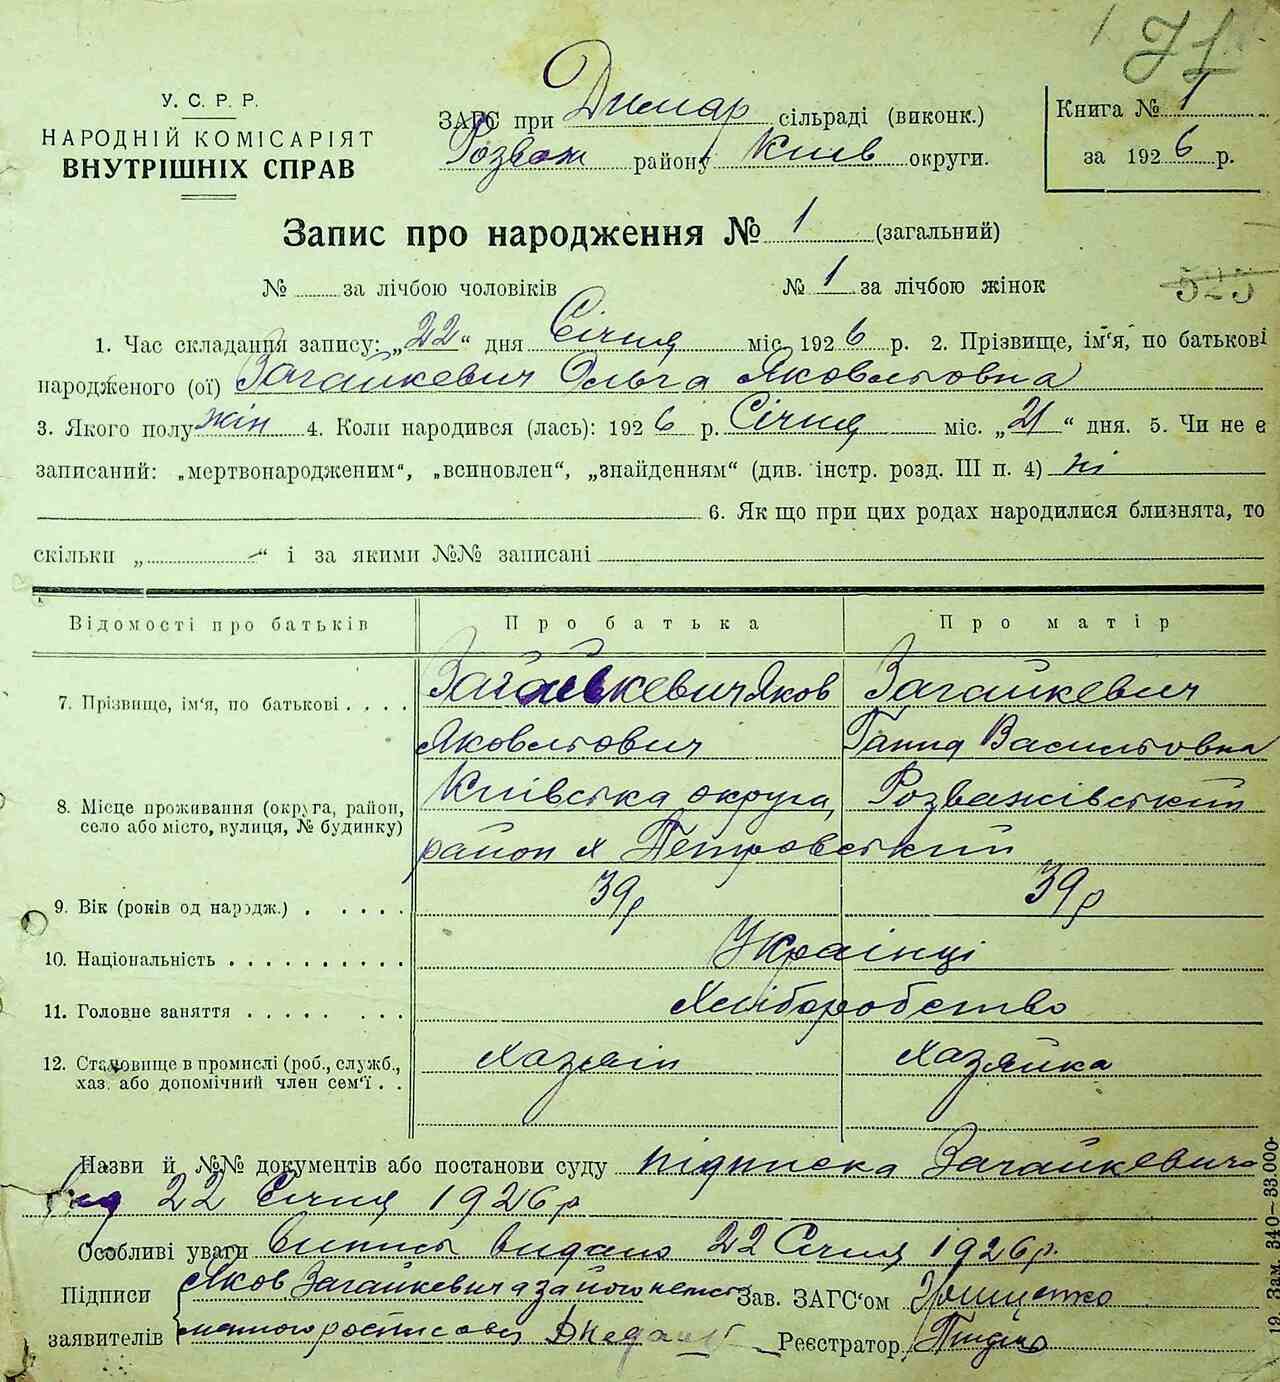 1 71
У. С. Р. Р.
НАРОДНІЙ КОМІСАРІЯТ
ВНУТРІШНІХ СПРАВ
ЗАГС при Димар сільраді (виконк.)
Розваж району Київ округи.
Книга № 1
за 1926 р.
Запис про народження № 1 (загальний)
№ за лічбою чоловіків № 1 за лічбою жінок
525
1. Час складання запису: „22“ дня Січня міс. 1926 р. 2. Прізвище, ім‘я, по батькові
народженого (ої) Загайкевич Ольга Яковльовна
3. Якого полу жін 4. Коли народився (лась): 1926 р. Січня міс. „21“ дня. 5. Чи не є
записаний: „мертвонародженим“, „всиновлен“, „знайденням“ (див. інстр. розд. III п. 4) ні
6. Як що при цих родах народилися близнята, то
скільки „ “ і за якими №№ записані
Відомості про батьків Про батька Про матір
7. Прізвище, ім‘я, по батькові Загайкевич Яков Загайкевич
Яковльович Ганна Васильовна
8. Місце проживання (округа, район, Київська округа, Розважівський
село або місто, вулиця, № будинку)
район х Петровський
9. Вік (років од народж.) 39р 39р
10. Національність Українці
11. Головне заняття Хліборобство
12. Становище в промислі (роб., служб., Хазяін Хазяйка
хаз. або допомічний член сем‘ї
Назви й №№ документів або постанови суду підписка Загайкевича
від 22 Січня 1926 р
Особливі уваги Випись видано 22 Січня 1926 р.
Підписи Яков Загайкевич а за його непись Зав. ЗАГС‘ом Грищенко
заявителів менного росписовся Реєстратор
19. Зам. 340–33.000